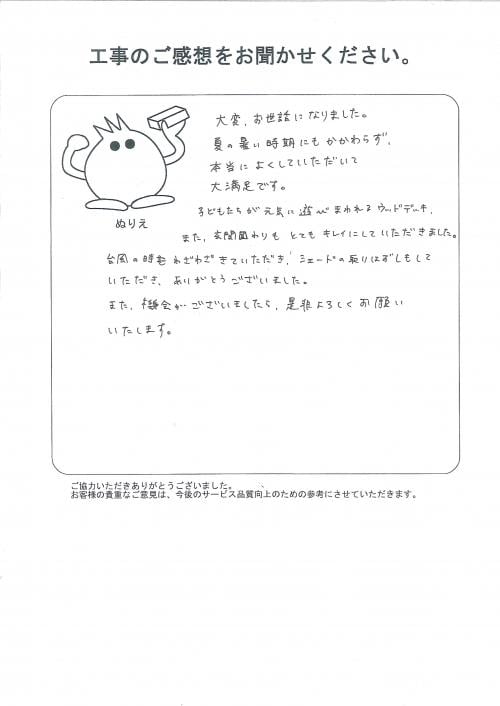 工事のご感想をお聞かせください。
大変、お世話になりました。
夏の暑い時期にもかかわらず、
本当によくしていただいて
大満足です。
ぬりえ
子どもたちが元気に遊びまわれるウッドデッキ、
また、玄関回わりもとてもキレイにしていただきました。
台風の時もわざわざきていただき、シェードの取りはずしもして
いただき、ありがとうございました。
また、機会がございましたら、是非よろしくお願い
いたします。
ご協力いただきありがとうございました。
お客様の貴重なご意見は、今後のサービス品質向上のための参考にさせていただきます。